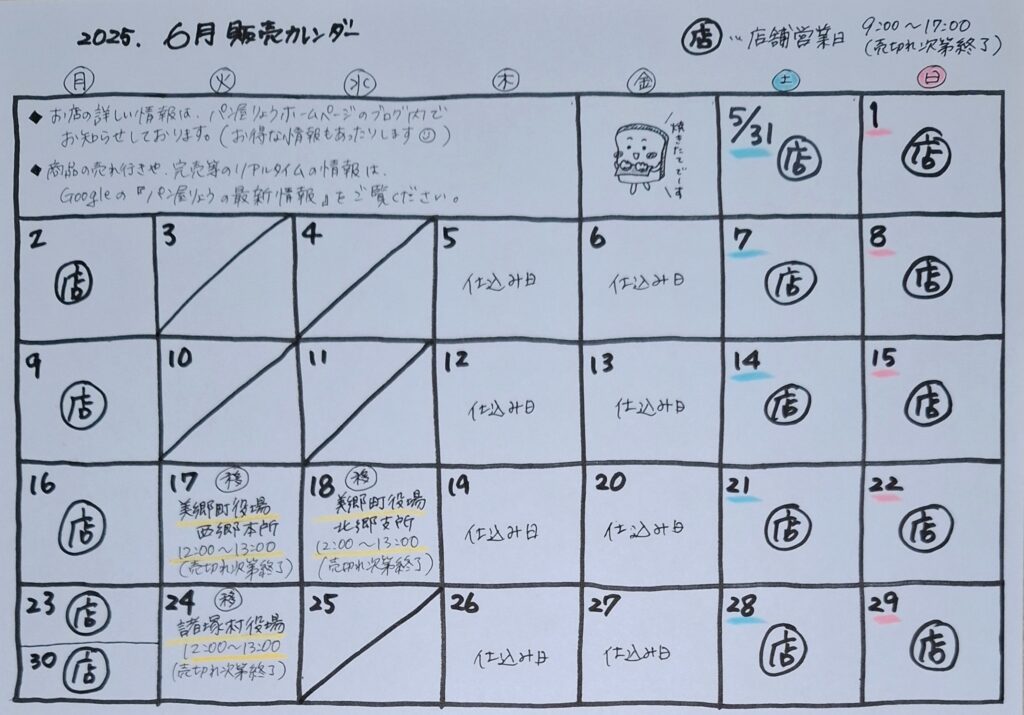 2025. 6月 販売カレンダー
店 … 店舗営業日 9:00～17:00
(売切れ次第終了)
月 火 水 木 金 土 日
◆ お店の詳しい情報は、パン屋りょうホームページのブログ内で
お知らせしております。(お得な情報もあったりします☺)
◆ 商品の売れ行きや、完売等のリアルタイムの情報は、
Googleの『パン屋りょうの最新情報』をご覧ください。
焼きたてでーす
5/31 店
1 店
2 店
3
4
5 仕込み日
6 仕込み日
7 店
8 店
9 店
10
11
12 仕込み日
13 仕込み日
14 店
15 店
16 店
17 移
美郷町役場
西郷本所
12:00～13:00
(売切れ次第終了)
18 移
美郷町役場
北郷支所
12:00～13:00
(売切れ次第終了)
19 仕込み日
20 仕込み日
21 店
22 店
23 店
30 店
24 移
諸塚村役場
12:00～13:00
(売切れ次第終了)
25
26 仕込み日
27 仕込み日
28 店
29 店